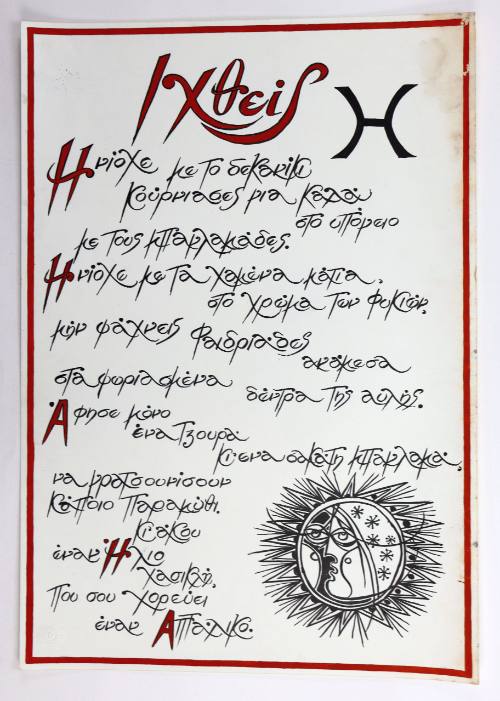 Ιχθείς
Ηνίοχε με το δεκανίκι
κούρνιασες μια καλά
στο υπόγειο
με τους μπαγλαμάδες.
Ηνίοχε με τα χαμένα μάτια,
στο χρώμα των φυκιών,
μην ψάχνεις Φαιδριάδες
ανάμεσα
στα ψωριασμένα
δέντρα της αυλής.
Άφησε μόνο
ένα Τζουρά
κι ένα σακάτη μπαγλαμά,
να γρατσουνίσουν
κάποιο Παραμύθι.
Κι άκου
έναν Ήλιο
χασικλή,
Που σου χορεύει
έναν Απτάλικο.